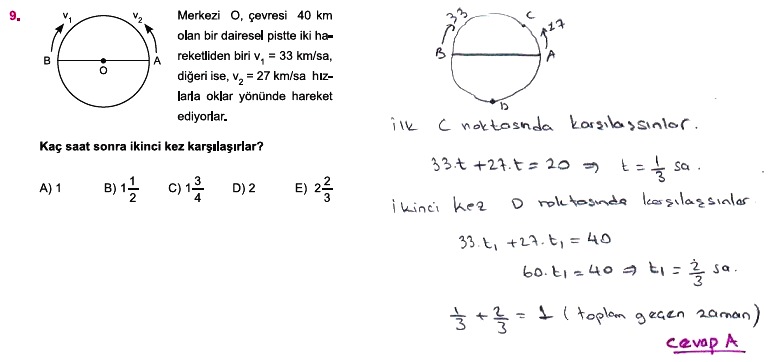 9.
v₁ v₂
B A
O
Merkezi O, çevresi 40 km
olan bir dairesel pistte iki ha-
reketliden biri v₁ = 33 km/sa,
diğeri ise, v₂ = 27 km/sa hız-
larla oklar yönünde hareket
ediyorlar.
Kaç saat sonra ikinci kez karşılaşırlar?
A) 1 B) 1 1/2 C) 1 3/4 D) 2 E) 2 2/3
33 C 27
B A
D
ilk C noktasında karşılaşsınlar.
33.t + 27.t = 20 ⇒ t = 1/3 sa.
ikinci kez D noktasında karşılaşsınlar
33.t₁ + 27.t₁ = 40
60.t₁ = 40 ⇒ t₁ = 2/3 sa.
1/3 + 2/3 = 1 (toplam geçen zaman)
Cevap A